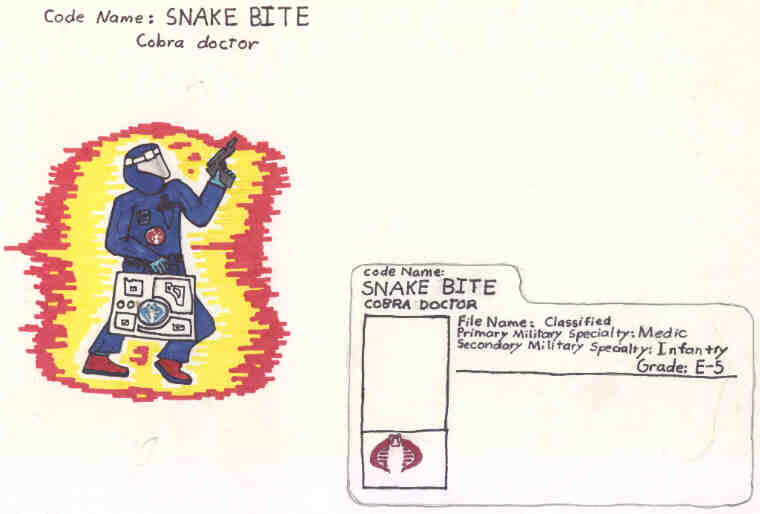 Code Name: SNAKE BITE
Cobra doctor
code Name:
SNAKE BITE
COBRA DOCTOR
File Name: Classified
Primary Military Specialty: Medic
Secondary Military Specialty: Infantry
Grade: E-5